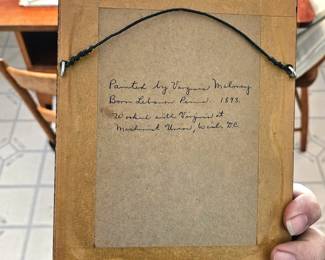 Painted by Virginia Maloney
Born Lebanon Penna. 1893.
Worked with Virginia at
Union, Wash. D.C.